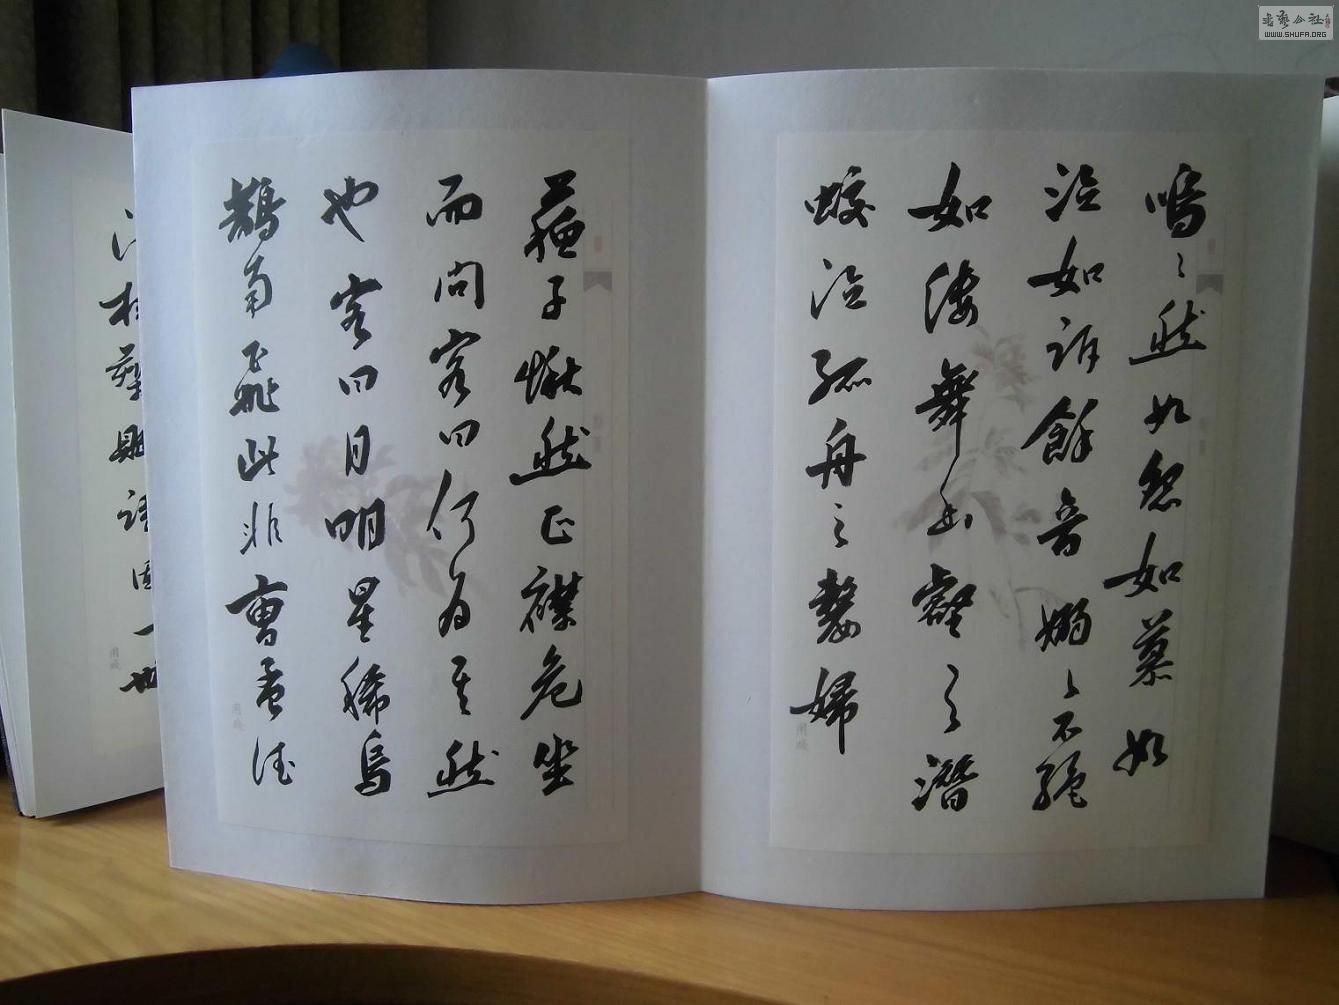 嗚〻然如怨如慕如
泣如訴餘音嫋〻不絕
如縷舞幽壑之潛
蛟泣孤舟之嫠婦
蘇子愀然正襟危坐
而問客曰何為其然
也客曰月明星稀烏
鵲南飛此非曹孟德
江橫槊賦詩固一世
書藝公社
WWW.SHUFA.ORG